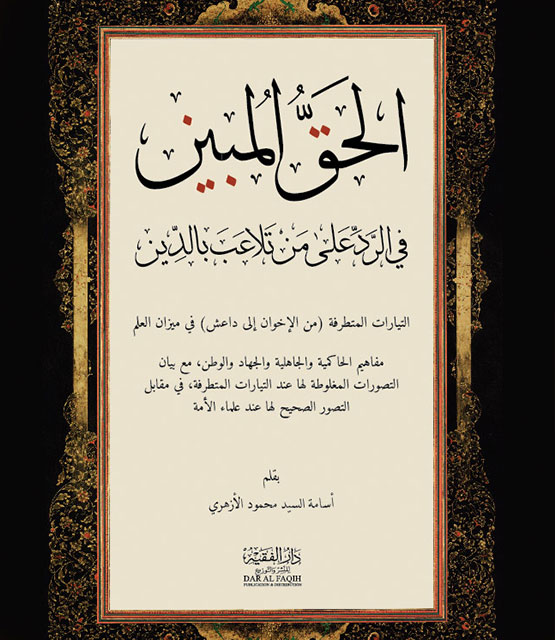 الحَقُّ المُبين
في الرَّدِّ عَلى مَن تَلاعَبَ بالدِّين
التيارات المتطرفة (من الإخوان إلى داعش) في ميزان العلم
مفاهيم الحاكمية والجاهلية والجهاد والوطن، مع بيان
التصورات المغلوطة لها عند التيارات المتطرفة، في مقابل
التصور الصحيح لها عند علماء الأمة
بقلم
أسامة السيد محمود الأزهري
دار الفقيه
للنشر والتوزيع
DAR AL FAQIH
PUBLICATION & DISTRIBUTION